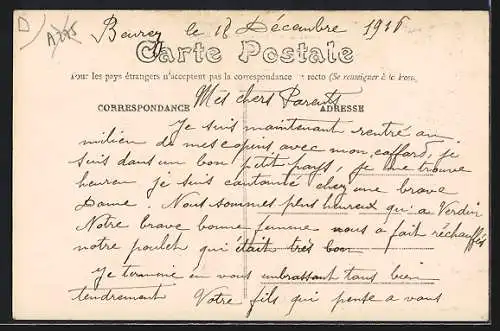 le 18 Décembre 1916
Carte Postale
Tous les pays étrangers n'acceptent pas la correspondance au recto (Se renseigner à la Poste
CORRESPONDANCE
ADRESSE
Mes chers Parents
Je suis maintenant rentré au
milieu de mes copins avec mon caffard, je
suis dans un bon petit pays, je me trouve
heureu je suis cantonné chez une brave
Dame. Nous sommes plus heureux qu'a Verdun
Notre brave bonne femme nous a fait réchauffés
notre poulet qui était très bon
Je termine en vous embrassant tous bien
tendrement Votre fils qui pense a vous